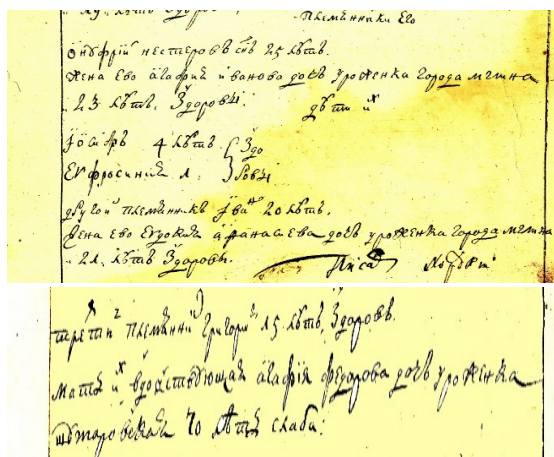 лѣтъ здоров
племѣнники его
онуфрїй нестеровъ снъ 25 лѣтъ.
жена ево агафия иванова дочь уроженка города мглина
23 лѣтъ. здоровы. дѣти их
їосифъ 4 лѣтъ здо
ефросиния 1. ровы
другой племянникъ иванъ 20 лѣтъ.
жена ево евдокия афанасьева дочь уроженка города мглина
21 лѣтъ здоровы.
трети племянник григорий 15 лѣтъ здоровъ.
мать их вдовствующая агафїя федорова дочь уроженка
70 лѣтъ слаба: